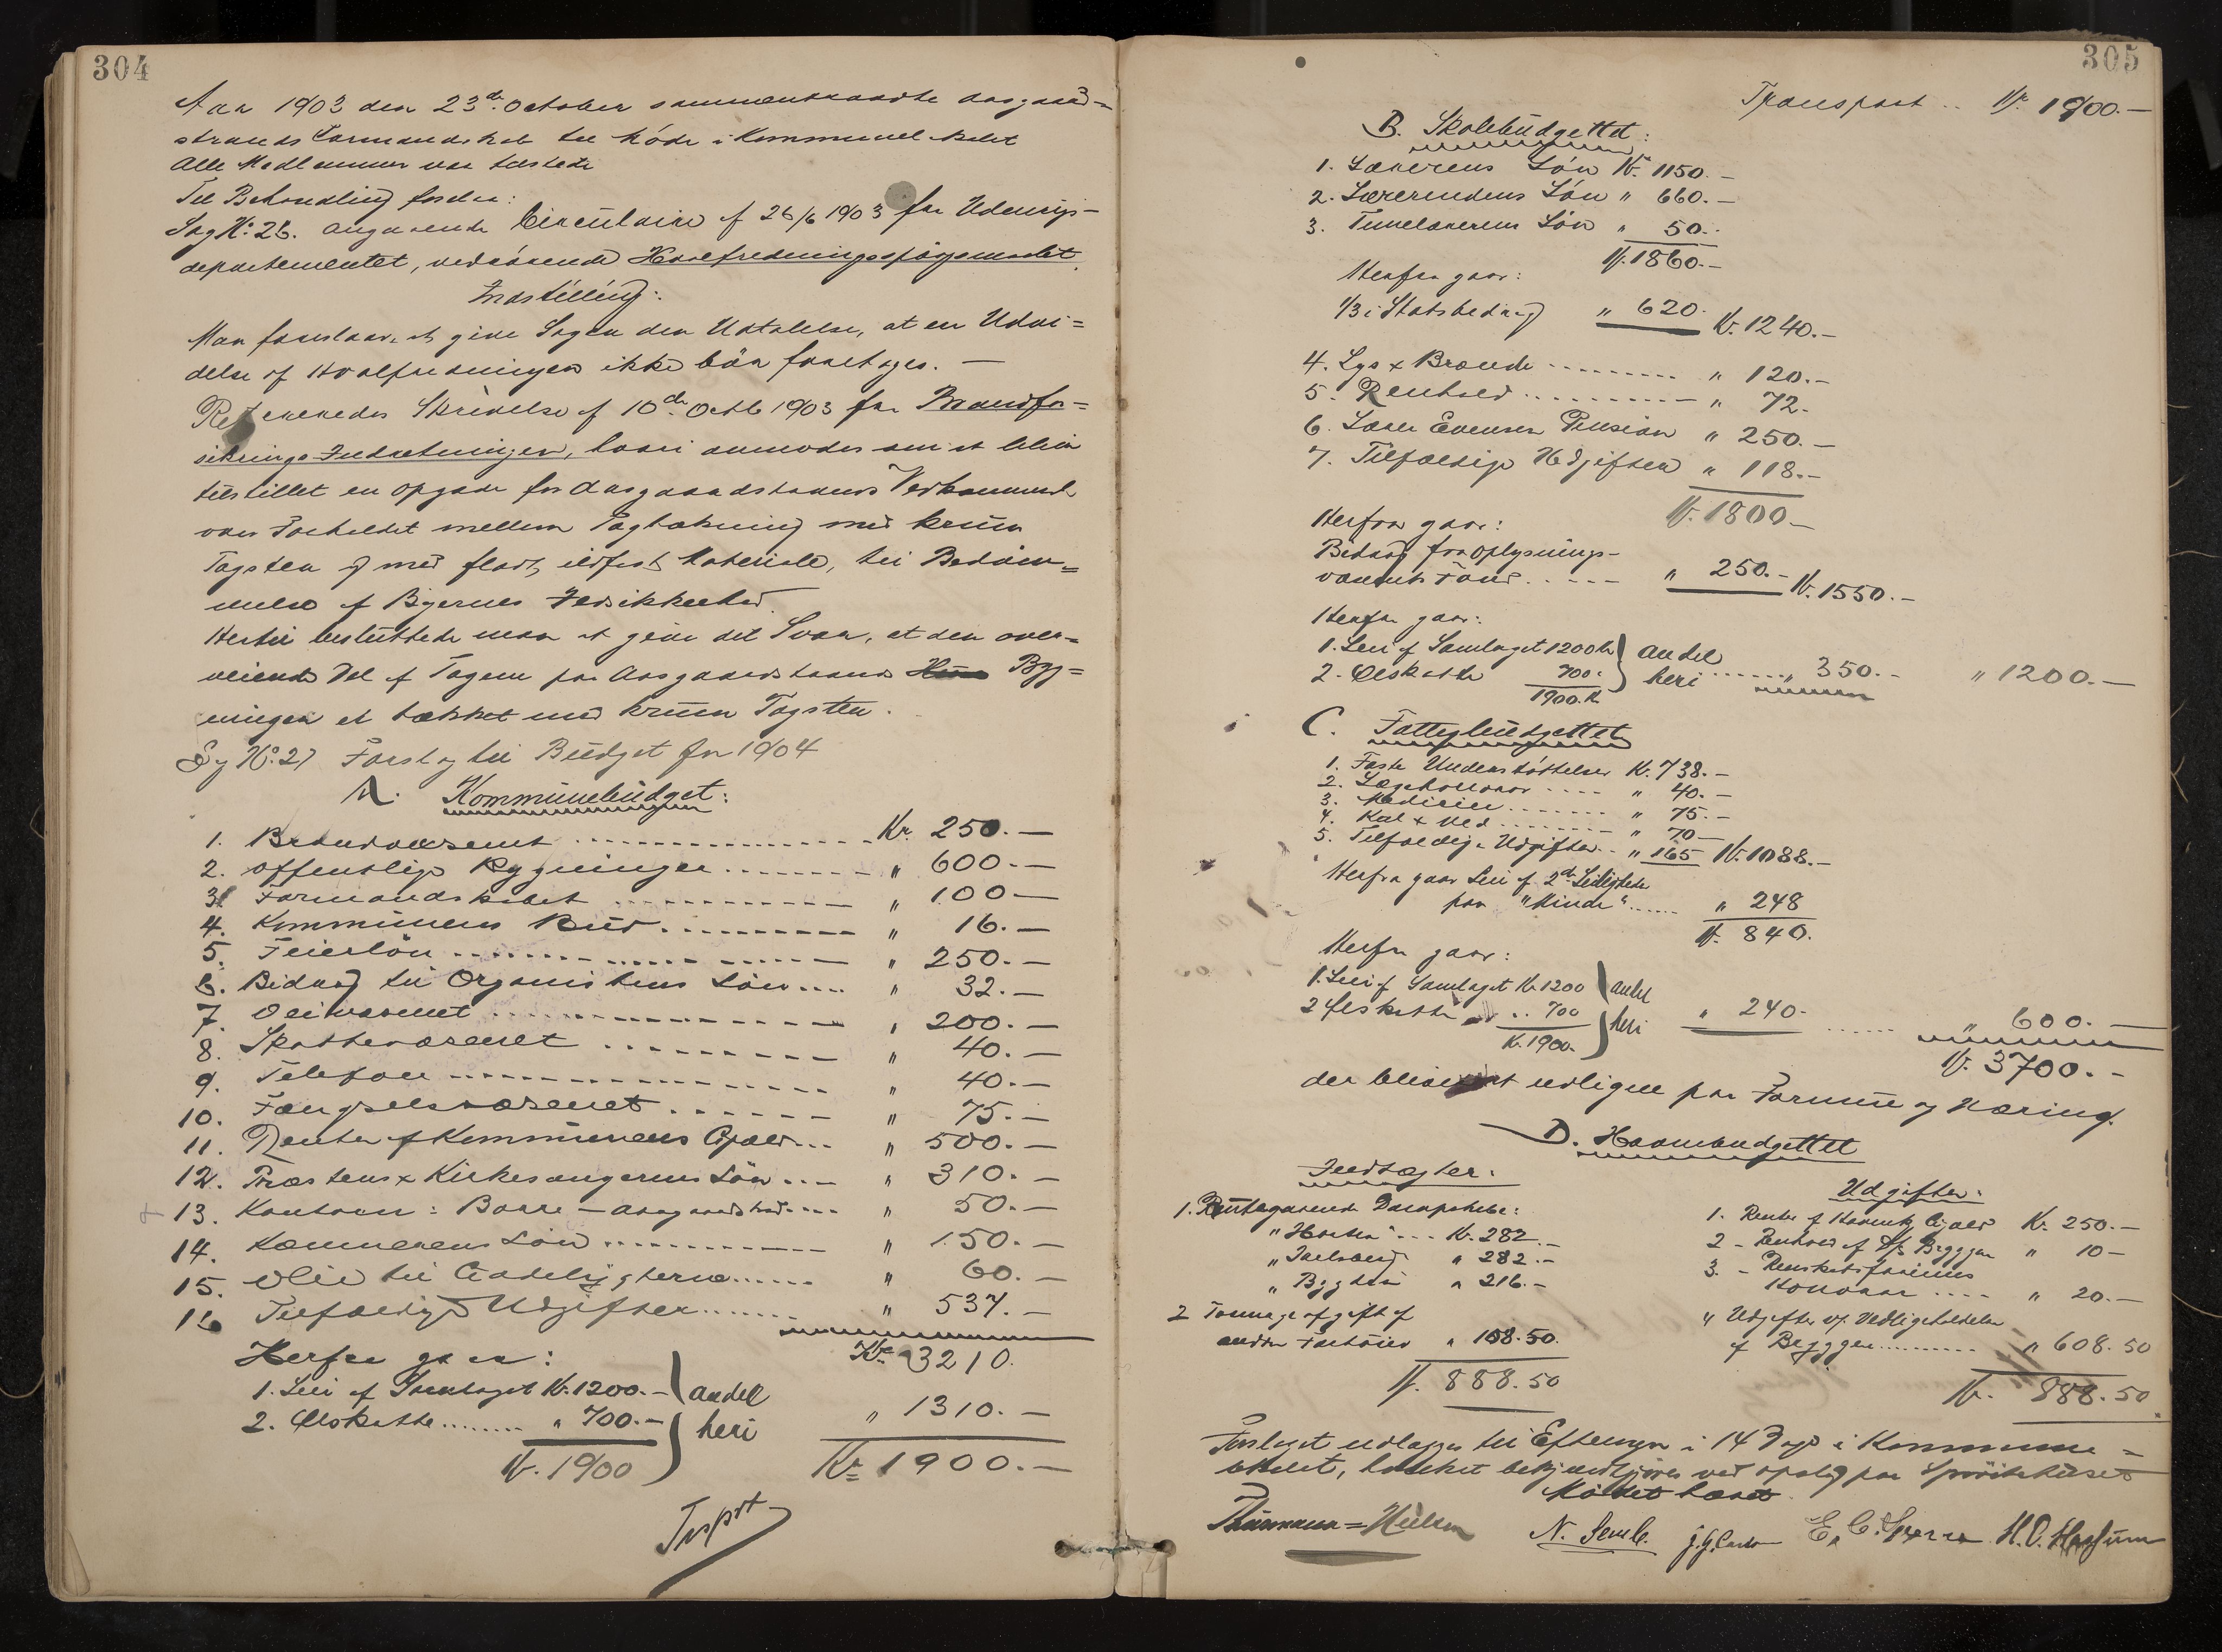 304
Aar 1903 den 23de October sammentraadte Aasgaard=
strands Formandskab til Möde i Kommunelokalet
Alle Medlemmer var tilstede
Til Behandling foretoges:
Sag No. 26. angaaende Circulaire af 26/6 1903 fra Udenrigs-
departementet, vedrörende Hvalfredningsspörgsmaalet.
Indstilling:
Man foreslaar, at give Sagen den Udtalelse, at en Udvi=
delse af Hvalfredningen ikke bör foretages. —
Refereredes Skrivelse af 10de Octb 1903 fra Brandfor=
sikrings-Indretningen, hvori anmodes om at blive
tilstillet en Opgave for Aasgaardstrands Vedkommende
over Forholdet mellem Tagtækning med krum
Tagsten og med fladt, ildfast Materiale, til Bedöm=
melse af Byernes Ildsikkerhed.
Hertil besluttede man at give det Svar, at den over=
veiende Del af Tagene paa Aasgaardstrands Byg=
ninger er tækket med krum Tagsten.
Sag No. 27 Forslag til Budget for 1904
A. Kommunebudget:
1. Brandvæsenet Kr. 250.—
2. Offentlige Bygninger " 600.—
3. Formandskabet " 100—
4. Kommunens Bud " 16.—
5. Feierlön " 250.—
6. Bidrag til Organistens Lön " 32.—
7. Veivæsenet " 200.—
8. Skattevæsenet " 40.—
9. Telefon " 40.—
10. Fængselsvæsenet " 75.—
11. Renter af Kommunens Gjæld " 500.—
12. Præstens & Kirkesangerens Lön " 310.—
13. Kontoen: Borre – Aasgaardstrand " 50.—
14. Kæmnerens Lön " 150.—
15. Olie til Gadelygterne " 60.—
16 Tilfældige Udgifter " 537.—
Kr. 3210.
Herfra gaar:
1. Leie af Samlaget Kr. 1200.— andel
2. Ølskatte " 700.— heri " 1310.—
Kr. 1900 Kr. 1900.—
Trsprt
305
Transport .. Kr. 1900.—
B. Skolebudgettet:
1. Lærerens Lön Kr. 1150.—
2. Lærerindens Lön " 660.—
3. Timelærerens Lön " 50.
Kr. 1860.—
Herfra gaar:
1/3 i Statsbidrag " 620. Kr. 1240.—
4. Lys & Brænde " 120.—
5. Renhold " 72.
6. Lærer Evensen Pension " 250.—
7. Tilfældige Udgifter " 118.—
Kr. 1800—
Herfra gaar:
Bidrag fra Oplysnings-
væsenets Fond " 250.— Kr. 1550.—
Herfra gaar:
1. Leie af Samlaget 1200 Kr andel
2. Ølskatte 700. heri " 350.— " 1200.—
1900. Kr.
C. Fattigbudgettet
1. Faste Understöttelser Kr. 738.—
2. Lægehonorar " 40.—
3. Medicin " 75.—
4. Kul & Ved " 70—
5. Tilfældige Udgifter " 165 Kr. 1088.—
Herfra gaar Leie af 2de Leiligheder
paa "Minde" " 248
Kr. 840.
Herfra gaar:
1. Leie af Samlaget Kr. 1200 andel
2 Ølskatte .. 700 heri " 240. " 600.—
Kr. 1900.
Kr. 3700.—
der bliver at udligne paa Formue og Næring.
D. Havnebudgettet
Indtægter:
1. Rutegaaende Dampskibe:
"Horten" Kr. 282.—
"Jarlsberg" " 282.—
"Bygdø" " 216.—
2 Tonnageafgift af
andre Fartöier " 108.50.
Kr. 888.50
Udgifter:
1. Renter af Havnens Gjæld Kr. 250.—
2 - Renhold af D/s Bryggen " 10—
3. - Regnskabsförerens
Honorar " 20.—
" Udgifter vp. Vedligeholdelse
af Brygger " 608.50
Kr. 888.50
Forslaget udlægges til Eftersyn i 14 Dage i Kommune=
lokalet, hvilket bekjendtgjöres ved opslag paa Spröitehuset
Mödet hævet.
Thürmann-Nielsen N. Semb. E. C. H. O.